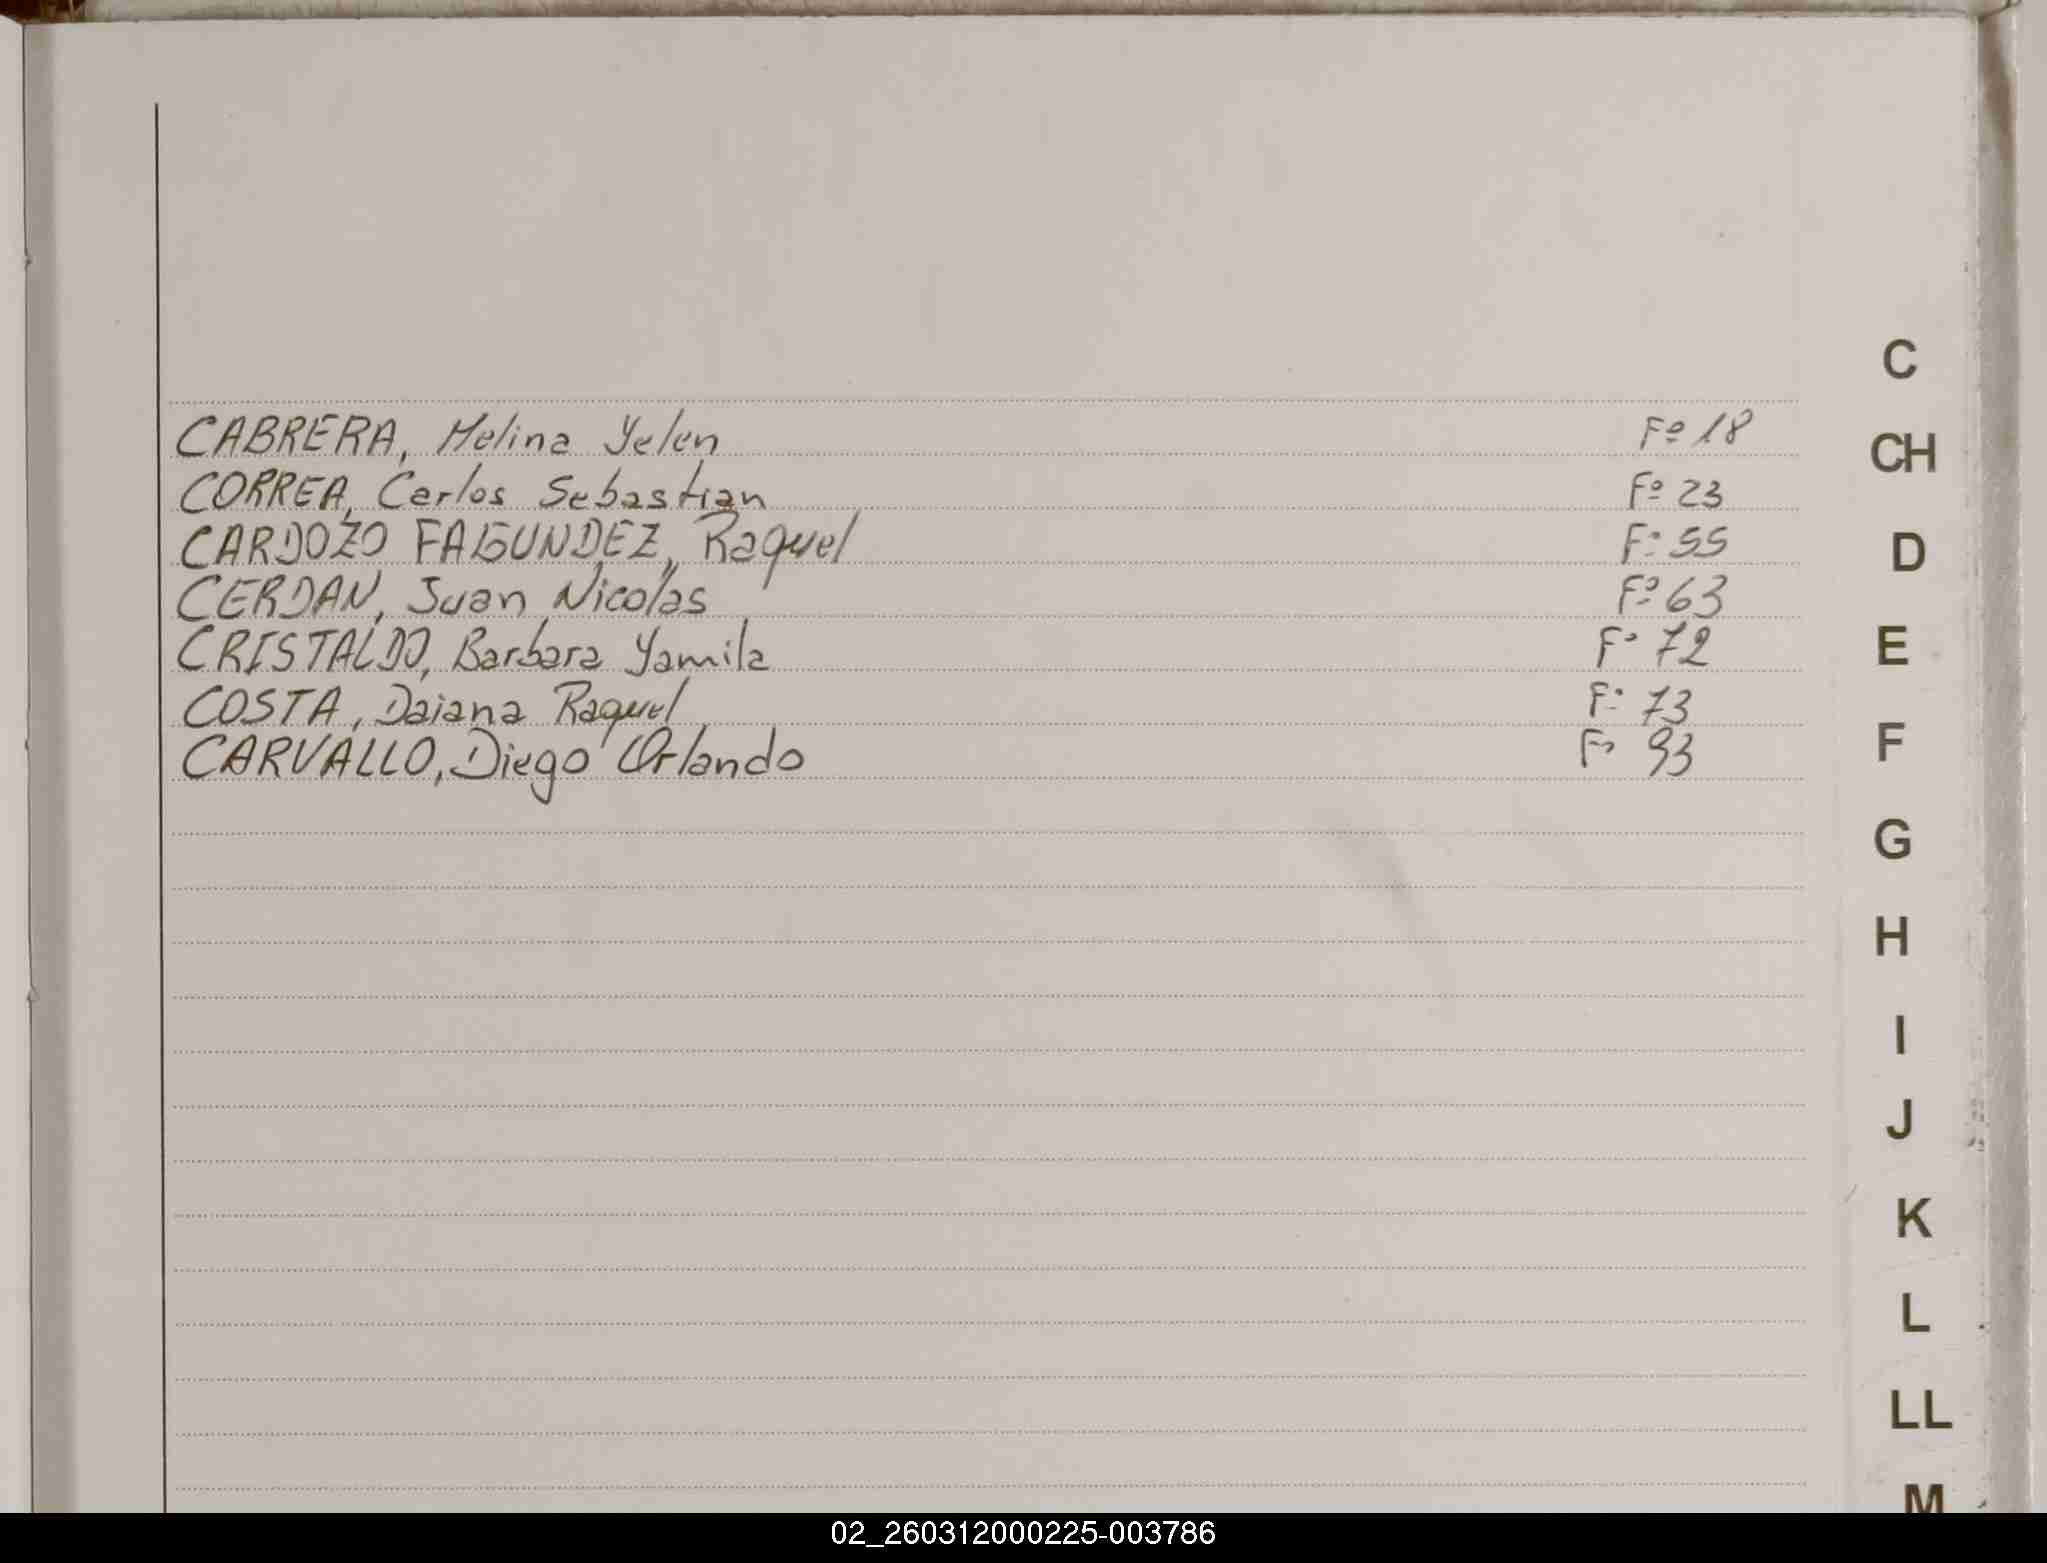 C
CABRERA, Melina Yelen Fº 18
CH
CORREA, Carlos Sebastian Fº 23
CARDOZO FAGUNDEZ, Raquel Fº 55
D
CERDAN, Juan Nicolas Fº 63
CRISTALDO, Barbara Yamila Fº 72
E
COSTA, Daiana Raquel Fº 73
CARVALLO, Diego Orlando Fº 93
F
G
H
I
J
K
L
LL
M
02_260312000225-003786